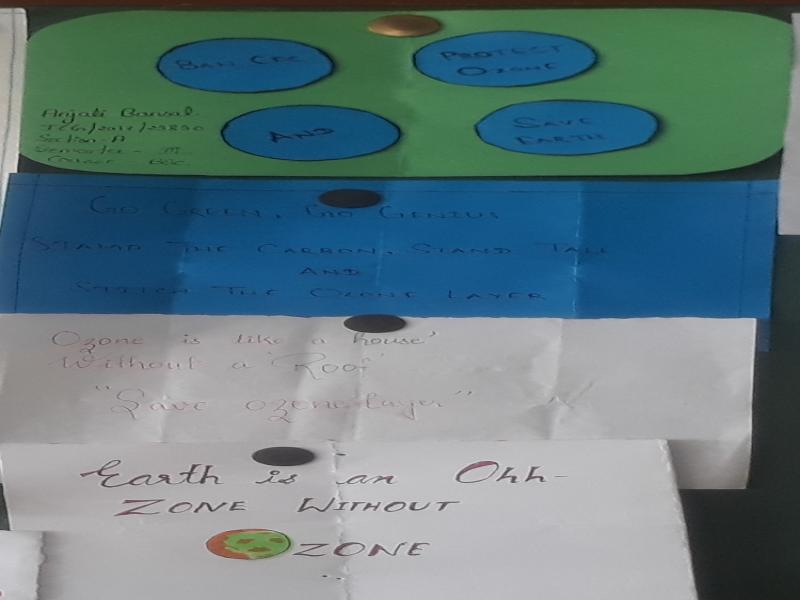 BAN CFC
PROTECT
OZONE
AND
SAVE
EARTH
Anjali Bansal
Section-A
Semester - III
Course BSc.
GO GREEN, GO GENIUS
STAMP THE CARBON, STAND TALL
AND
STITCH THE OZONE LAYER
Ozone is like a house'
Without a 'Roof'
"Save ozone layer"
Earth is an Ohh-
ZONE WITHOUT
OZONE